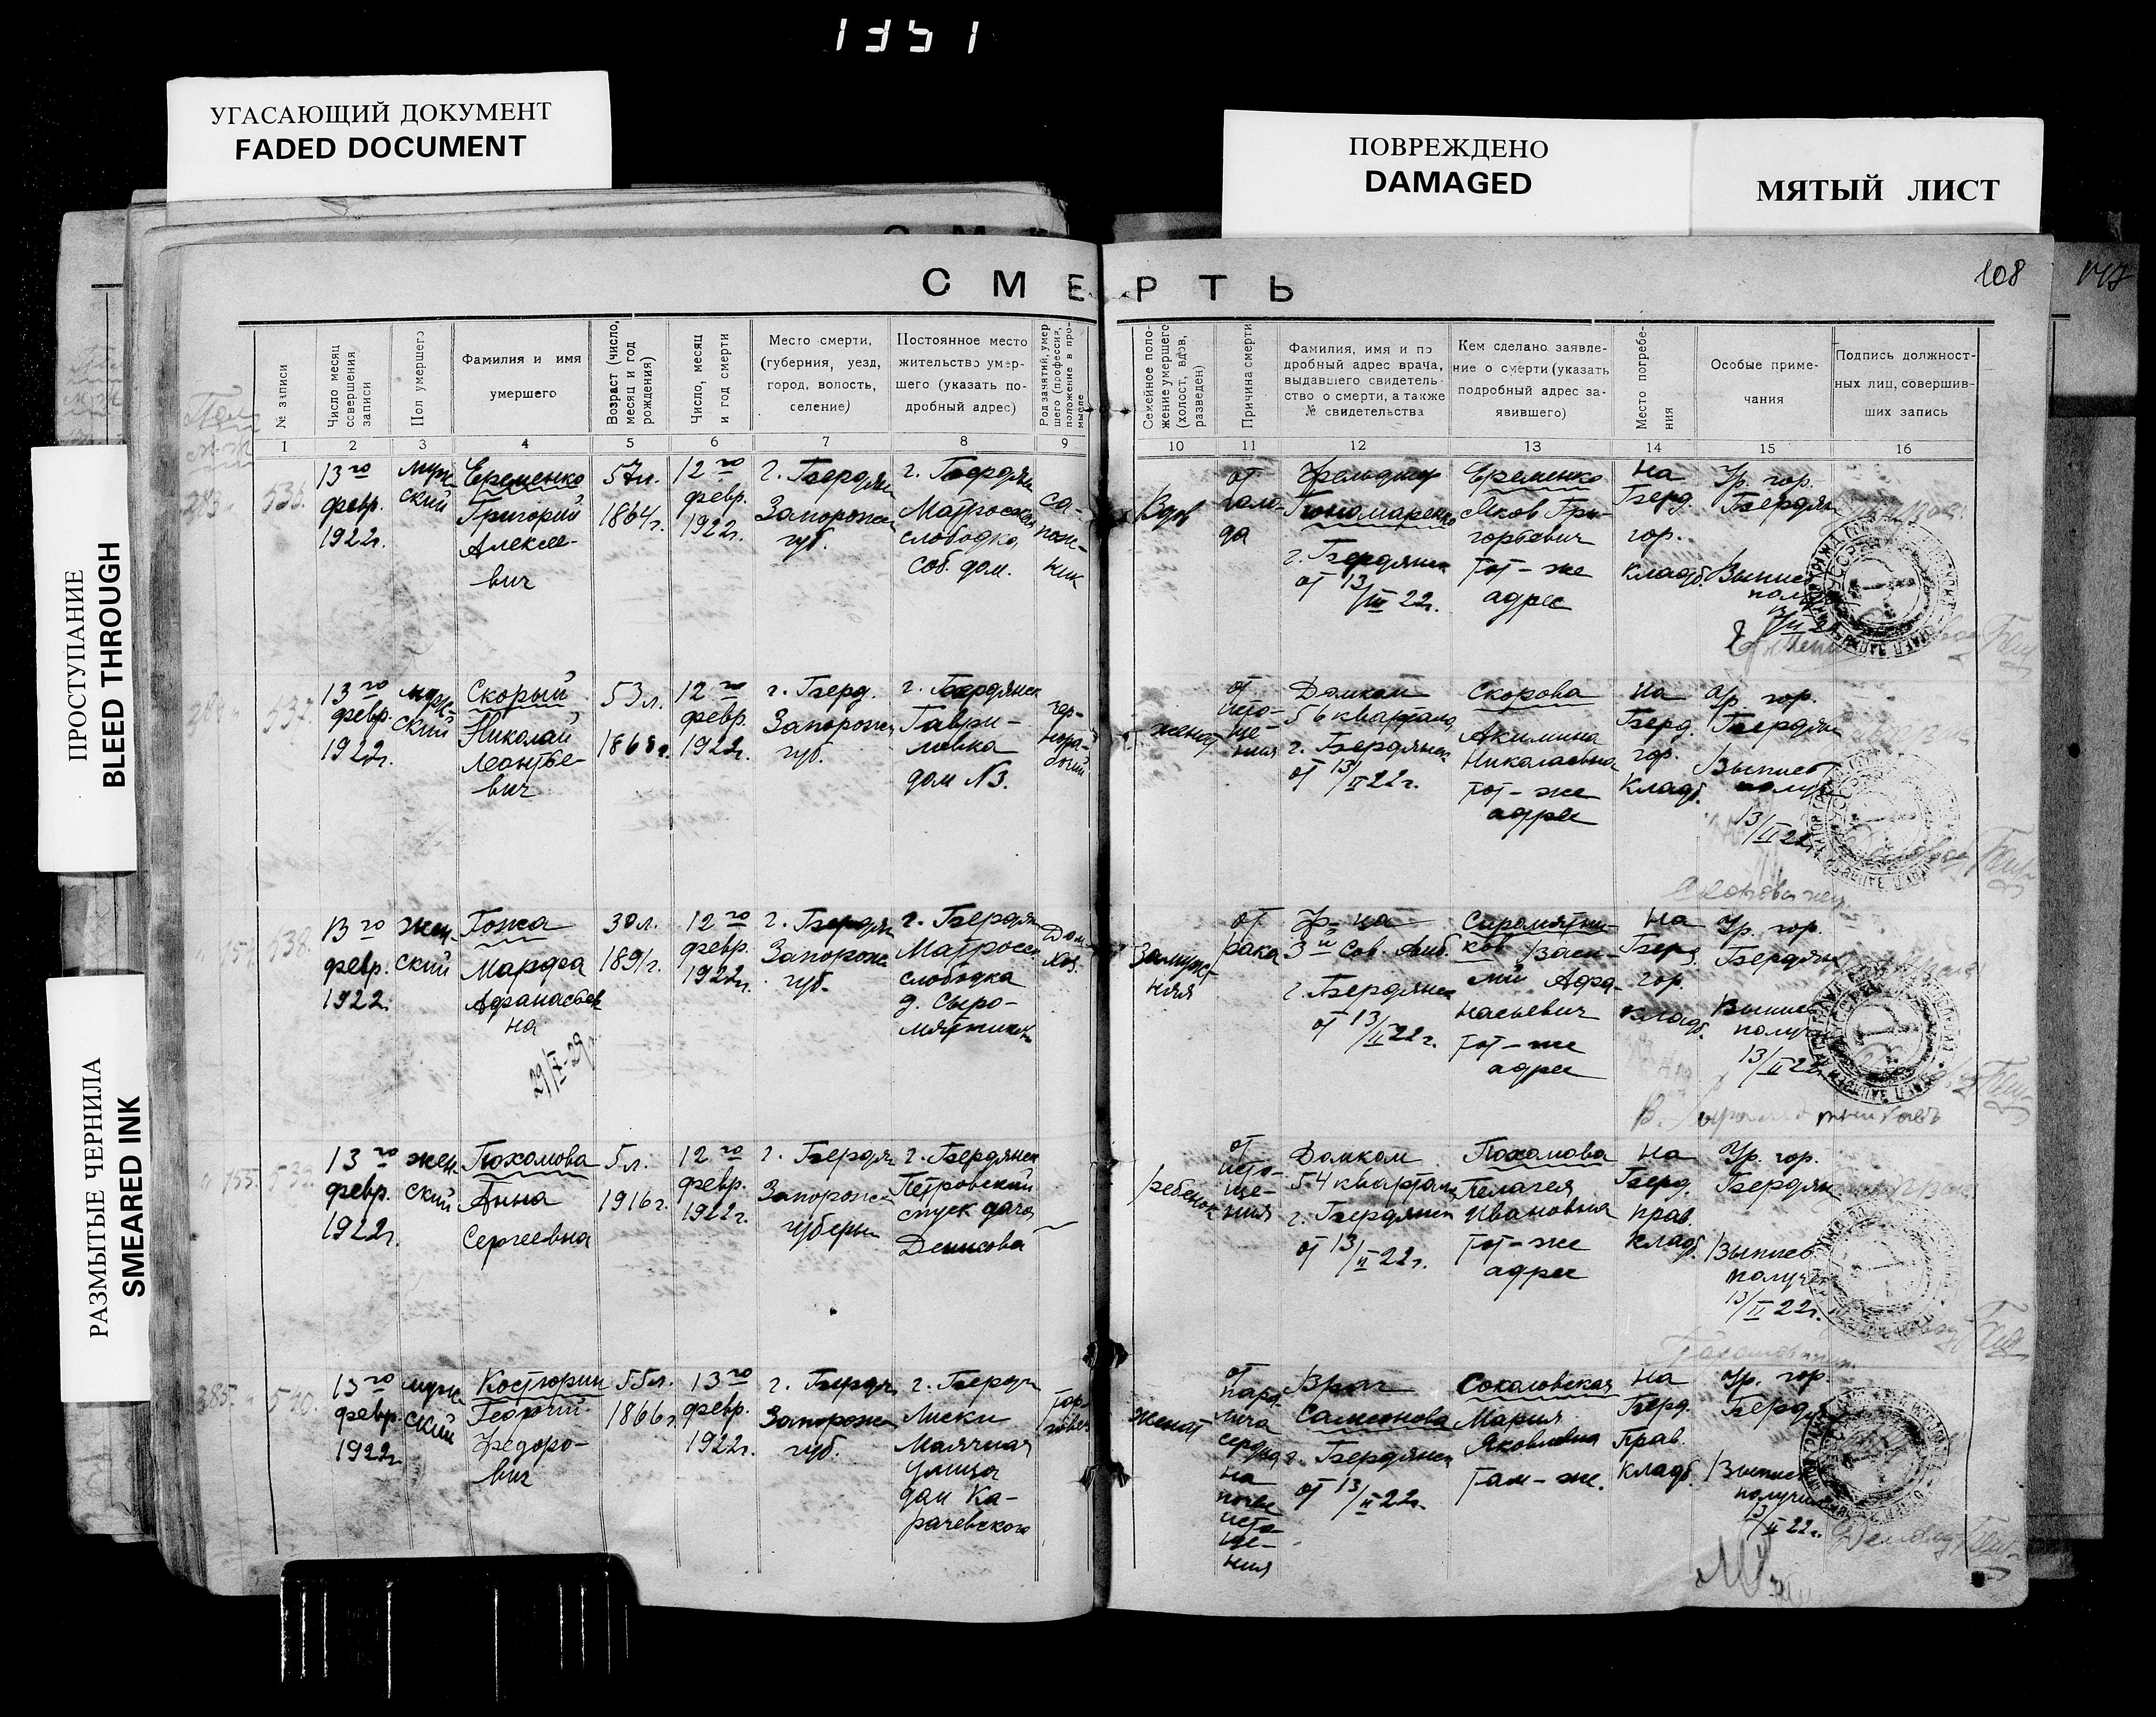 1351
УГАСАЮЩИЙ ДОКУМЕНТ
FADED DOCUMENT
ПОВРЕЖДЕНО
DAMAGED
МЯТЫЙ ЛИСТ
ПРОСТУПАНИЕ
BLEED THROUGH
РАЗМЫТЫЕ ЧЕРНИЛА
SMEARED INK
СМЕРТЬ
108
№ записи
Число месяц совершения записи
Пол умершего
Фамилия и имя
умершего
Возраст (число, месяц и год рождения)
Число, месяц и год смерти
Место смерти,
(губерния, уезд,
город, волость,
селение)
Постоянное место
жительство умер-
шего (указать по-
дробный адрес)
Род занятий, умер
шего (профессия,
положение в про-
мысле
Семейное поло-
жение умершего
(холост, вдов,
разведен)
Причина смерти
Фамилия, имя и по
дробный адрес врача,
выдавшего свидетель-
ство о смерти, а также
№ свидетельства
Кем сделано заявле-
ние о смерти (указать
подробный адрес за-
явившего)
Место погребе-
ния
Особые приме-
чания
Подпись должност-
ных лиц, совершив-
ших запись
1 2 3 4 5 6 7 8 9 10 11 12 13 14 15 16
536.
13го
февр.
1922г.
муж
ский
Еременко
Григорий
Алексее-
вич
57л.
1864г.
12го
февр.
1922г.
г. Бердян
Запорожск
губ.
г. Бердян
Матросская
слободка
соб. дом.
са-
пож-
ник
Вдов
от
голо-
да
Фельдшер
Пономаренко
г. Бердянск
от 13/II 22г.
Еременко
Яков Гри-
горьевич
тот-же
адрес
на
Берд.
гор.
кладб.
Ур. гор.
Бердян
Выпись
537.
13го
февр.
1922г.
муж-
ский
Скорый
Николай
Леонтье-
вич
53л.
1868г.
12го
февр.
1922г.
г. Берд.
Запорожск
губ.
г. Бердянск
Гаври-
ловка
дом N3.
чер-
нора-
бочий
женат
от
исто-
ще-
ния
Домком
56 квартала
г. Бердянск
от 13/II 22г.
Скорова
Акимина
Николаевна
тот-же
адрес
на
Берд.
гор.
кладб.
Ур. гор.
Бердян
Выпись
получ
13/II 22г.
538.
13го
февр.
1922.
жен-
ский
Гожа
Марфа
Афанасьев
на
30л.
1891г.
12го
февр.
1922г.
г. Бердян
Запорожск
губ.
г. Бердян
Матросс
слободка
д. Сыро-
мятников
Дом
хоз.
Замуж-
няя
от
рака
Сов. Амб.
г. Бердянск
от 13/II 22г.
Сиромятни-
ков Васи-
лий Афа-
насьевич
тот-же
адрес
на
Берд.
гор.
кладб.
Ур. гор.
Бердян
Выпись
получ
13/II 22г.
539.
13го
февр.
1922г.
жен
ский
Похомова
Анна
Сергеевна
5л.
1916г.
12го
февр.
1922г.
г. Бердян
Запорожск
губерн
г. Бердянск
Петровский
спуск дача
Денисова
—
ребенок
от
исто-
ще-
ния
Домком
54 квартала
г. Бердянск
от 13/II 22г.
Похомова
Пелагея
Ивановна
тот-же
адрес
на
Берд.
прав.
кладб.
Ур. гор.
Бердян
Выпись
получ
13/II 22г.
540.
13го
февр.
1922г
муж
ский
Костюрин
Георгий
Федоро-
вич
55л.
1866г
13го
февр.
1922г.
г. Бердян
Запорожск
губ.
г. Бердян
Лиски
Маячная
улица
дом Ка-
рачевского
тор-
говец
женат
от
пара-
лича
сердца
на
почве
исто-
ще-
ния
Врач
Самсонова
г. Бердянск
от 13/II 22г.
Соколовская
Мария
Яковлевна
там-же.
на
Берд.
Прав.
кладб.
Ур. гор
Бердян
Выпись
получил
13/II 22г.